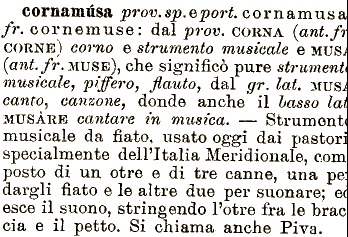 cornamúsa prov. sp. e port. cornamusa
fr. cornemuse: dal prov. CORNA (ant. fr
CORNE) corno e strumento musicale e MUSA
(ant. fr. MUSE), che significò pure strument
musicale, piffero, flauto, dal gr. lat. MUSA
canto, canzone, donde anche il basso lat
MUSÀRE cantare in musica. — Strument
musicale da fiato, usato oggi dai pastori
specialmente dell'Italia Meridionale, com
posto di un otre e di tre canne, una pe
dargli fiato e le altre due per suonare; ed
esce il suono, stringendo l'otre fra le brac
cia e il petto. Si chiama anche Piva.